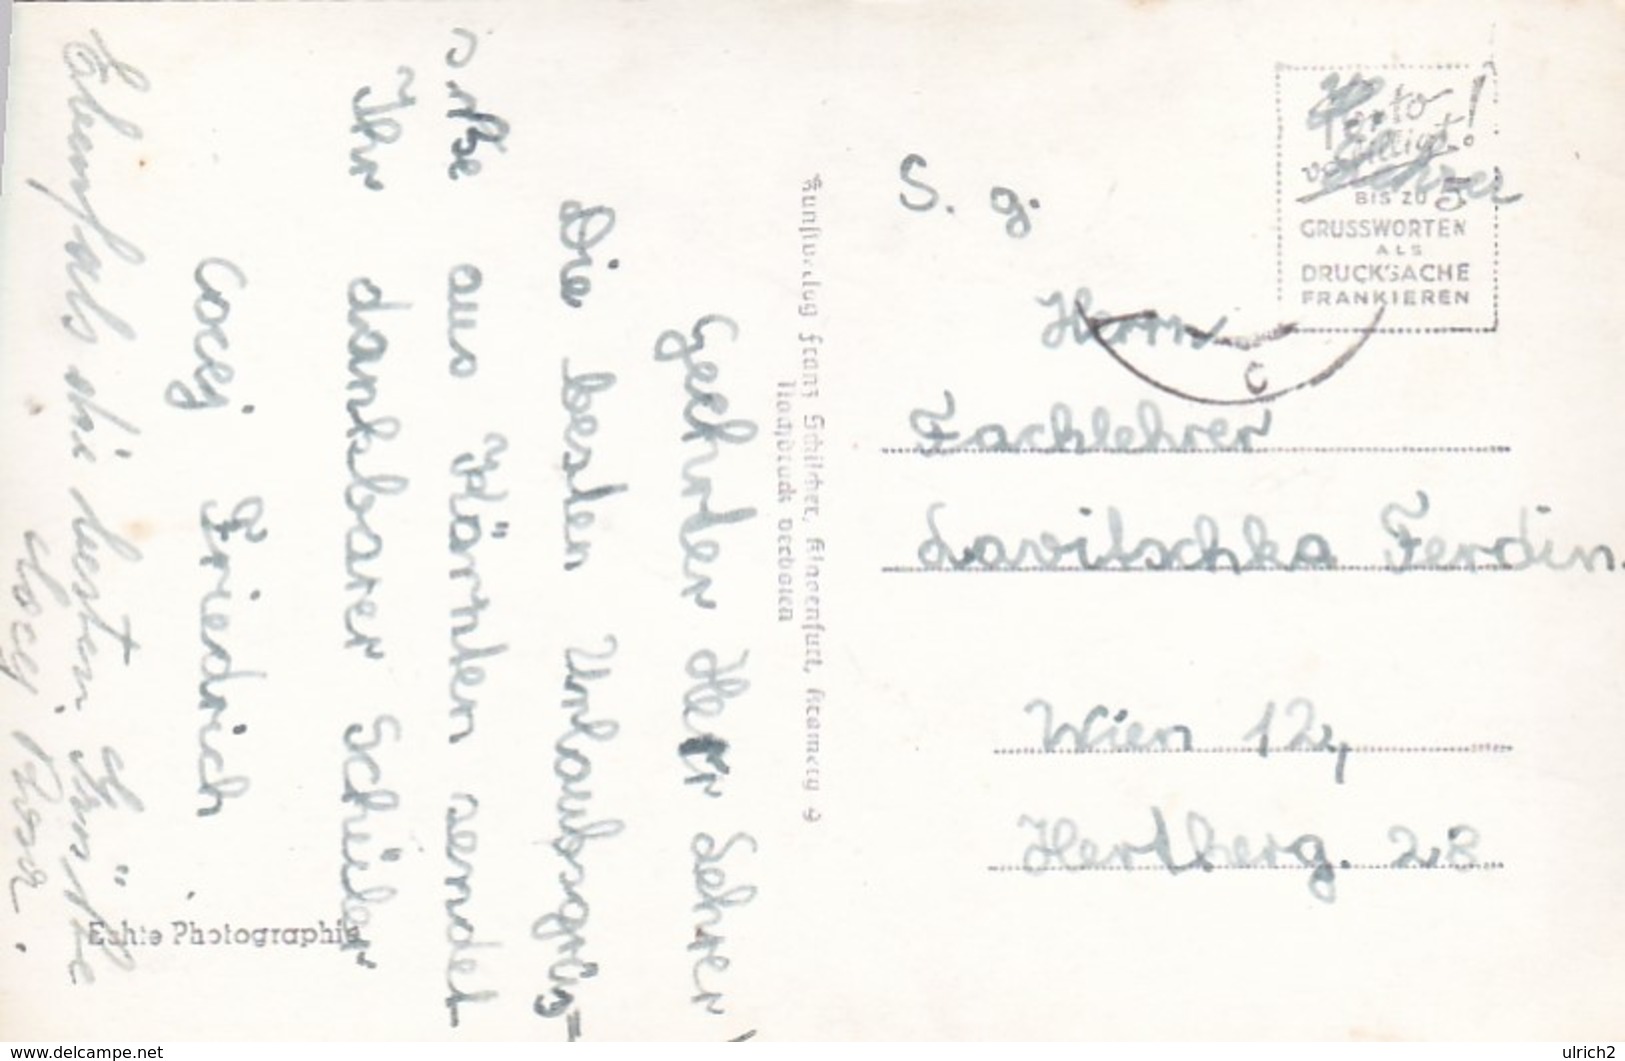 Geehrter Herr Lehrer!
Die besten Urlaubsgrüs=
se aus Kärnten sendet
Ihr dankbarer Schüler
Friedrich
Ebenfalls die besten Grüße
Kunstverlag Franz Schilcher, Klagenfurt,
Nachdruck verboten
Echte Photographie
Porto
verbilligt!
BIS ZU 5
GRUSSWORTEN
ALS
DRUCKSACHE
FRANKIEREN
C
S. g.
Herrn
Fachlehrer
Lavitschka Ferdin.
Wien 12,
Hertberg. 28
www.delcampe.net
ulrich2